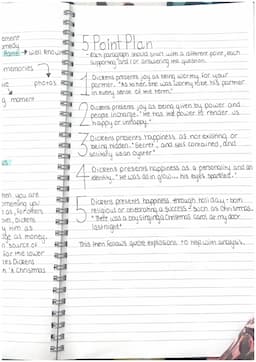 ement
omedy
Home → well known
memories
ve photos
g moment
us
hen you are
omenting you
as, for others
ves, Dickens
y him as
age as money.
n source of
for the lower
res Dickens
n 'A Christmas
5 Point Plan
- Each paragraph should start with a different point, each
supporting and/or answering the question.
1 Dickens presents joy as being worthy for your
partner. "As to her, she was worthy to be his partner
in every sense of the term."
2 Dickens presents joy as being given by power and
people in charge. "He has the power to render us
happy or unhappy."
3 Dickens presents happiness as not existing or
being hidden. "Secret, and self contained, and
solitary as an oyster."
4 Dickens presents happiness as a personality and an
identity. "He was all in a glow... his eyes sparkled."
5 Dickens presents happiness through holiday - both
religious or celebrating a success if such as Christmas.
"There was a boy singing a Christmas Carol at my door
last night"
This then follows quote explosions to help with analysis.